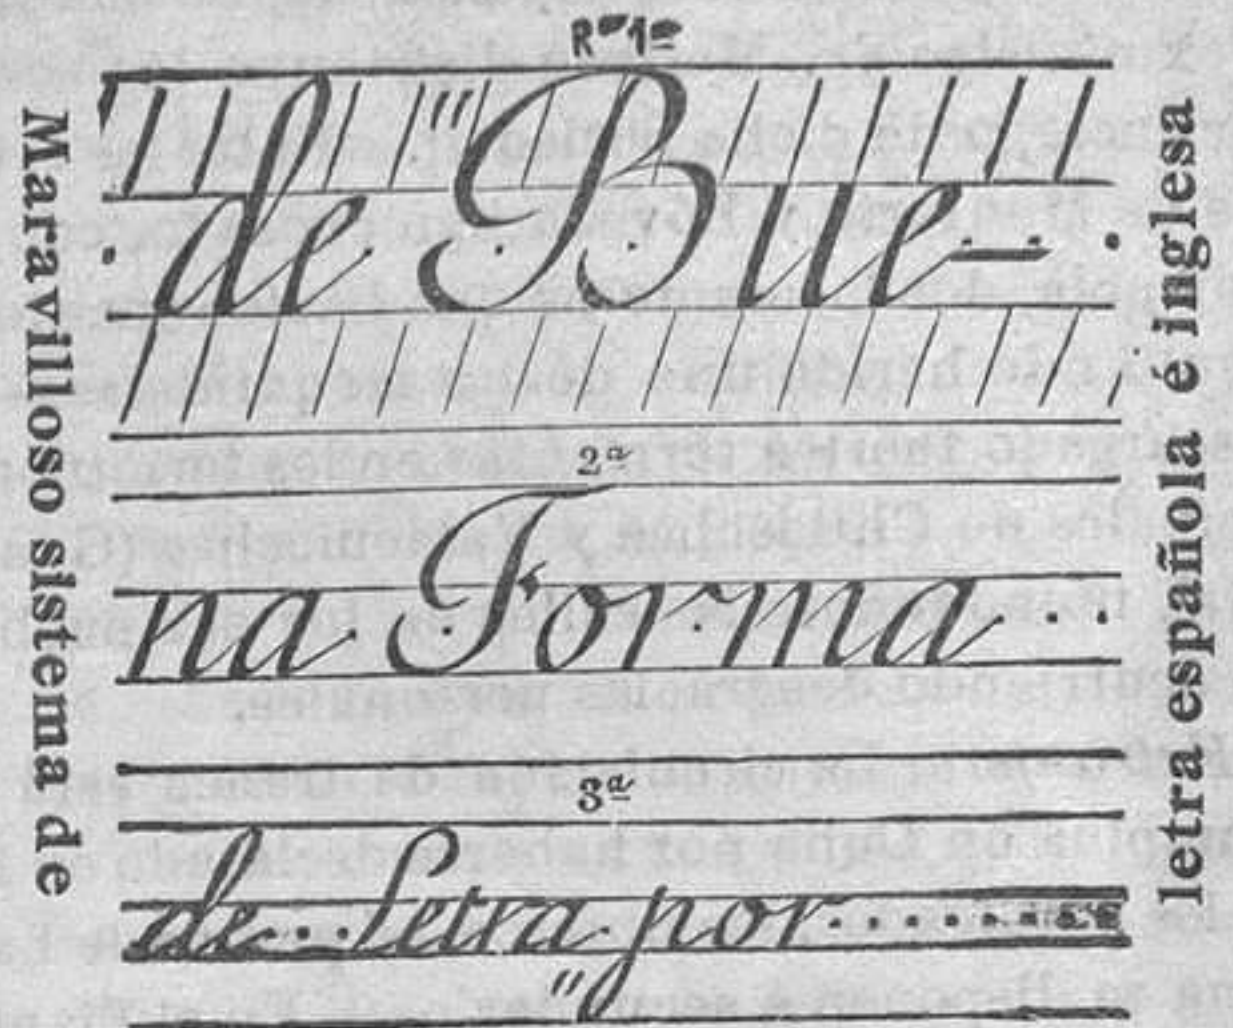 Maravilloso sistema de
Rᵃ 1ª
de "Bue-
2ª
na Forma
3ª
de Letra por
"
letra española é inglesa